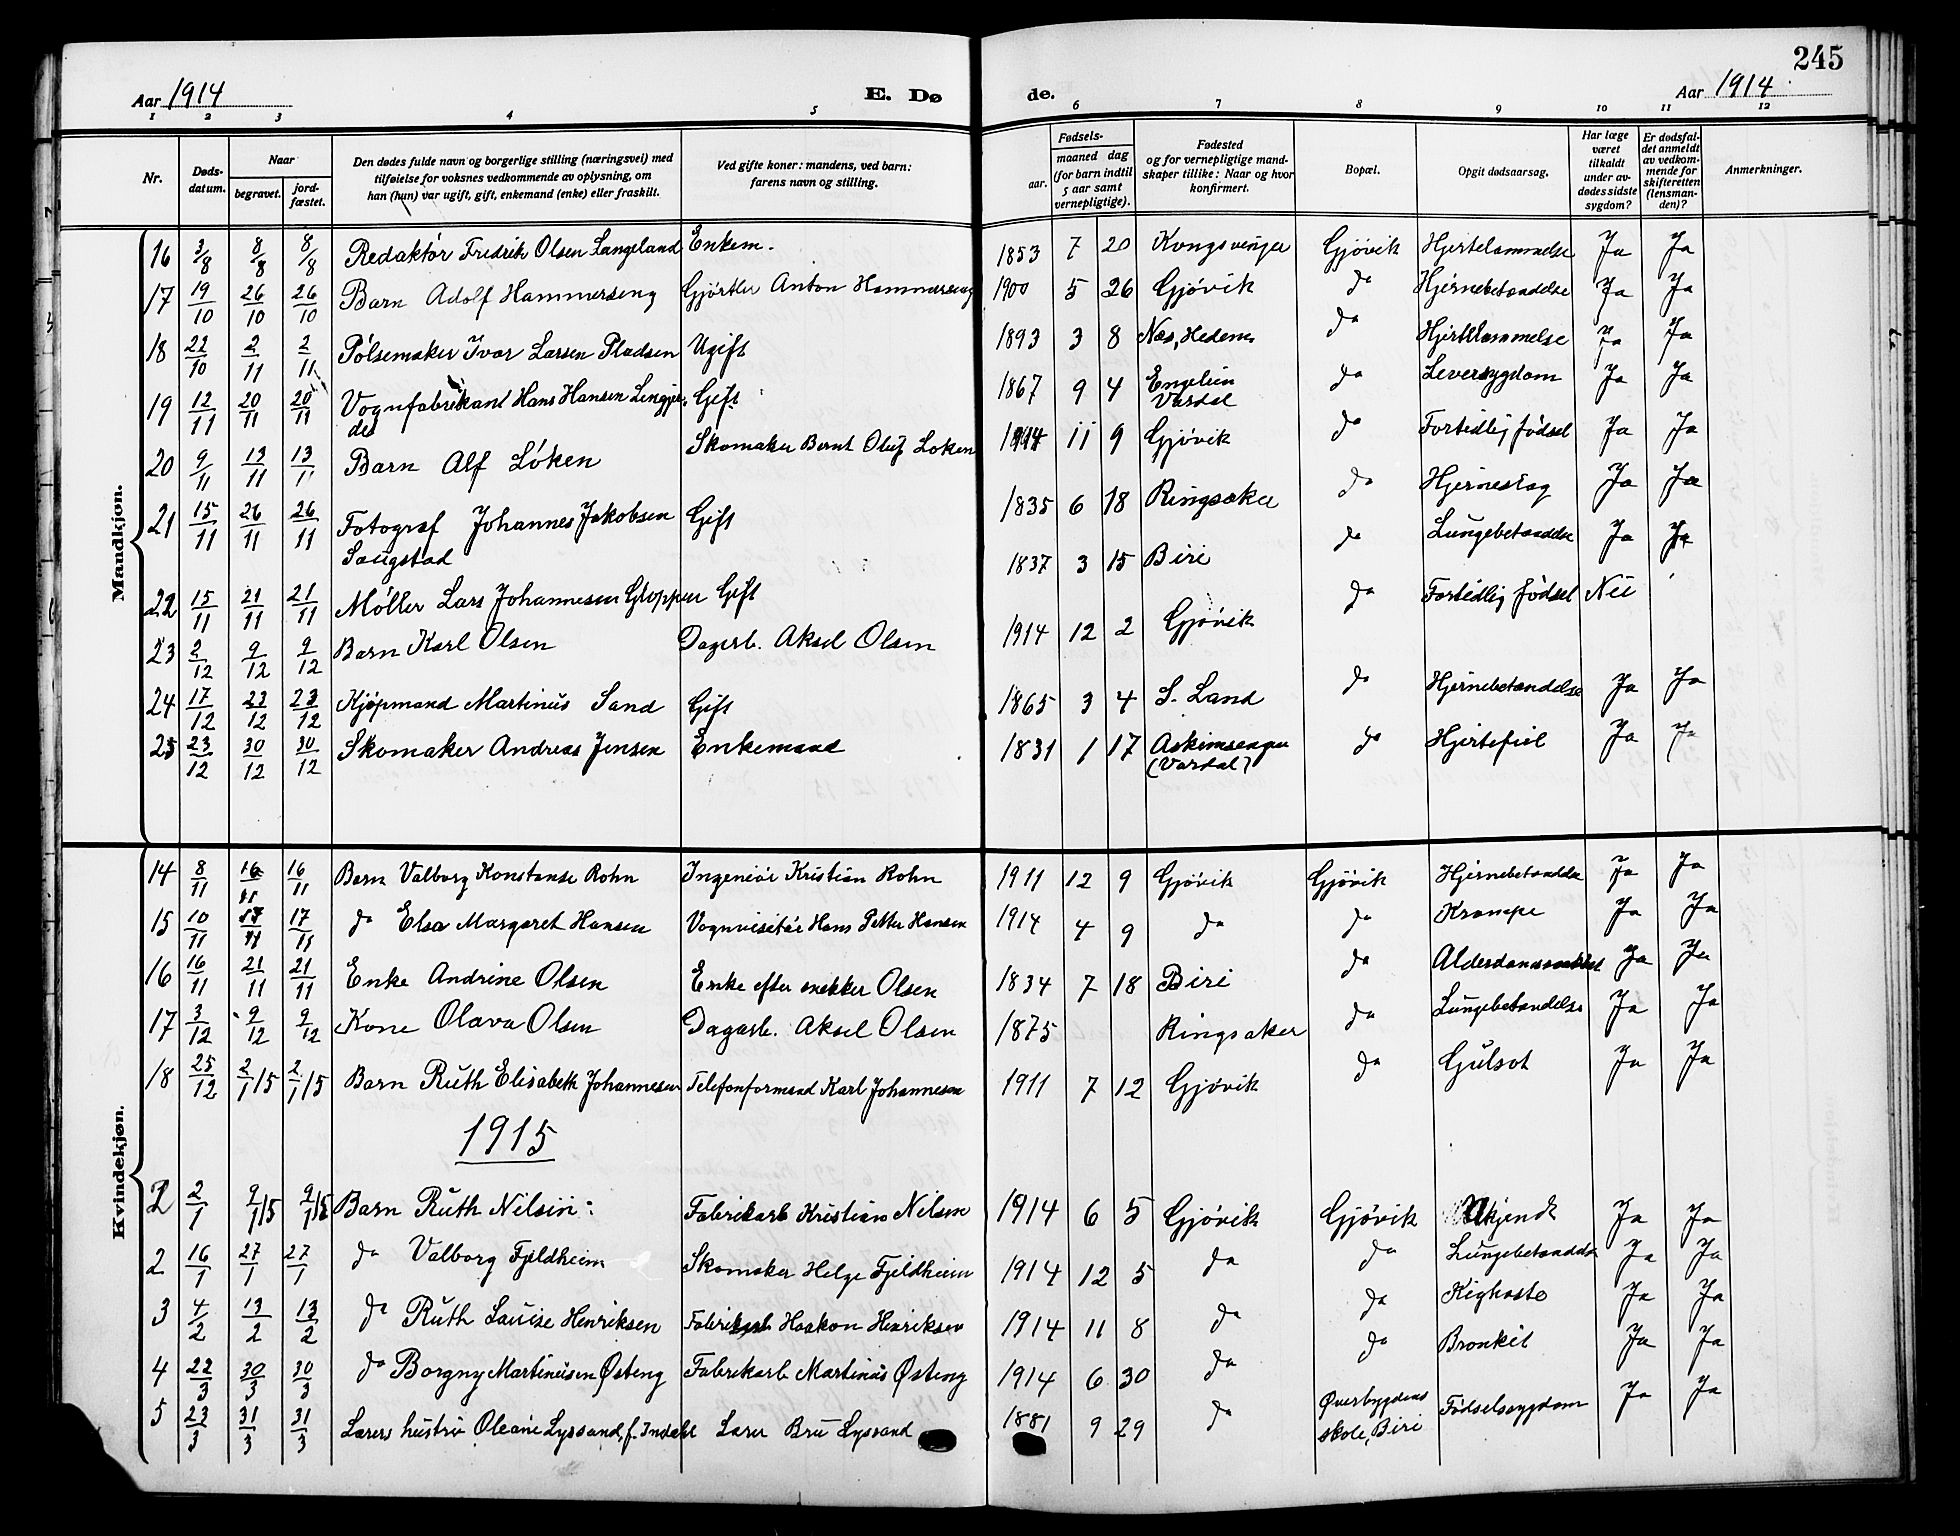 245
Aar 1914 E. Dø de. Aar 1914
1 2 3 4 5 6 7 8 9 10 11 12
Nr. Døds-datum. Naar begravet. jord-fæstet. Den dødes fulde navn og borgerlige stilling (næringsvei) med tilføielse for voksnes vedkommende av oplysning, om han (hun) var ugift, gift, enkemand (enke) eller fraskilt. Ved gifte koner: mandens, ved barn: farens navn og stilling. Fødsels- aar. maaned dag (for barn indtil 5 aar samt vernepligtige). Fødested og for vernepligtige mand-skaper tillike: Naar og hvor konfirmert. Bopæl. Opgit dødsaarsag. Har læge været tilkaldt under av-dødes sidste sygdom? Er dødsfal-det anmeldt av vedkom-mende for skifteretten (lensman-den)? Anmerkninger.
Mandkjøn.
16 3/8 8/8 8/8 Redaktør Fredrik Olsen Langeland Enkem. 1853 7 20 Kongsvinger Gjøvik Hjertelammelse Ja Ja
17 19/10 26/10 26/10 Barn Adolf Hammerseng Gjørtler Anton Hammerseng 1900 5 26 Gjøvik do Hjernebetændelse Ja Ja
18 22/10 2/11 2/11 Pølsemaker Ivar Larsen Pladsen Ugift 1893 3 8 Nes, Hedem. do Hjertelammelse Ja Ja
19 12/11 20/11 20/11 Vognfabrikant Hans Hansen Lingjer-
det Gift 1867 9 4 Engelien
Vardal do Leversygdom Ja Ja
20 9/11 13/11 13/11 Barn Alf Løken Skomaker Bernt Oluf Løken 1914 11 9 Gjøvik do Fortidlig fødsel Ja Ja
21 15/11 26/11 26/11 Fotograf Johannes Jakobsen
Saugstad Gift 1835 6 18 Ringsaker do Hjerneslag Ja Ja
22 15/11 21/11 21/11 Møller Lars Johannesen Gloppen Gift 1837 3 15 Biri do Lungebetændelse Ja Ja
23 2/12 9/12 9/12 Barn Karl Olsen Dagarb. Aksel Olsen 1914 12 2 Gjøvik do Fortidlig fødsel Nei
24 17/12 23/12 23/12 Kjøpmand Martinus Sand Gift 1865 3 4 S. Land do Hjernebetændelse Ja Ja
25 23/12 30/12 30/12 Skomaker Andreas Jensen Enkemand 1831 1 17 Askimsengen
(Vardal) do Hjertefeil Ja Ja
Kvindekjøn.
14 8/11 16/11 16/11 Barn Valborg Konstanse Rohn Ingeniør Kristian Rohn 1911 12 9 Gjøvik Gjøvik Hjernebetændelse Ja Ja
15 10/11 17/11 17/11 do Elsa Margaret Hansen Vognvisitør Hans Petter Hansen 1914 4 9 do do Krampe Ja Ja
16 16/11 21/11 21/11 Enke Andrine Olsen Enke efter snekker Olsen 1834 7 18 Biri do Alderdomssvakhet Ja Ja
17 3/12 9/12 9/12 Kone Olava Olsen Dagarb. Aksel Olsen 1875 Ringsaker do Lungebetændelse Ja Ja
18 25/12 2/1 15 2/1 15 Barn Ruth Elisabeth Johannesen Telefonformand Karl Johannesen 1911 7 12 Gjøvik do Gulsot Ja Ja
1915
2/1 9/1 15 9/1 15 Barn Ruth Nilsen Fabrikarb Kristian Nilsen 1914 6 5 Gjøvik Gjøvik Ukjendt Ja Ja
2 16/1 27/1 27/1 do Valborg Fjeldheim Skomaker Helge Fjeldheim 1914 12 5 do do Lungebetændelse Ja Ja
3 4/2 13/2 13/2 do Ruth Louise Henriksen Fabrikarb Haakon Henriksen 1914 11 8 do do Kighoste Ja Ja
4 22/3 30/3 30/3 do Borgny Martinusen Østeng Fabrikarb Martinus Østeng 1914 6 30 do do Bronkit Ja Ja
5 23/3 31/3 31/3 Lærers hustru Oleane Lyssand, f. Indahl Lærer Bru Lyssand 1881 9 29 do Øverbygdens
skole, Biri Fødselssygdom Ja Ja